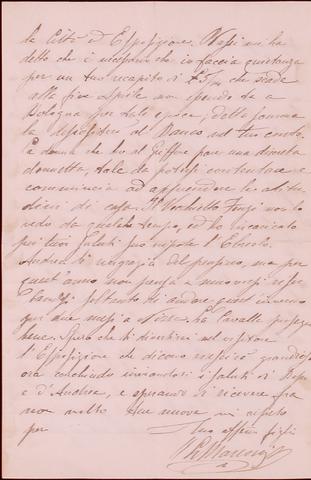 la Città ed Esposizione. Papi mi ha
detto che è necessario che tu faccia quietanza
per un tuo recapito di £ che scade
alla fine Aprile non essendo a
Bologna per tale epoca; detta somma
la depositerò al Banco nel tuo conto.
donna che ho al Griffone pare una discreta
donnetta, tale da potersi contentare e
comincia ad apprendere le abitu
dini di casa. Il Vecchietto Forzi non lo
vedo da qualche tempo, ed ho incaricato
pei tuoi saluti suo nipote l'Ercole.
Andrea ti ringrazia del propino, ma per
quest'anno non pensa a muoversi
soltanto di andare quest'inverno
per due mesi a Nizza. La Cavalla prosegue
bene. Spero che ti divertirai nel visitare
l'Esposizione che dicono riesca grandiosa
ora conchiudo inviandoti i saluti di Papi
e d'Andrea, e sperando di ricevere fra
non molto tue nuove, mi ripeto
per Tuo affmo figlio